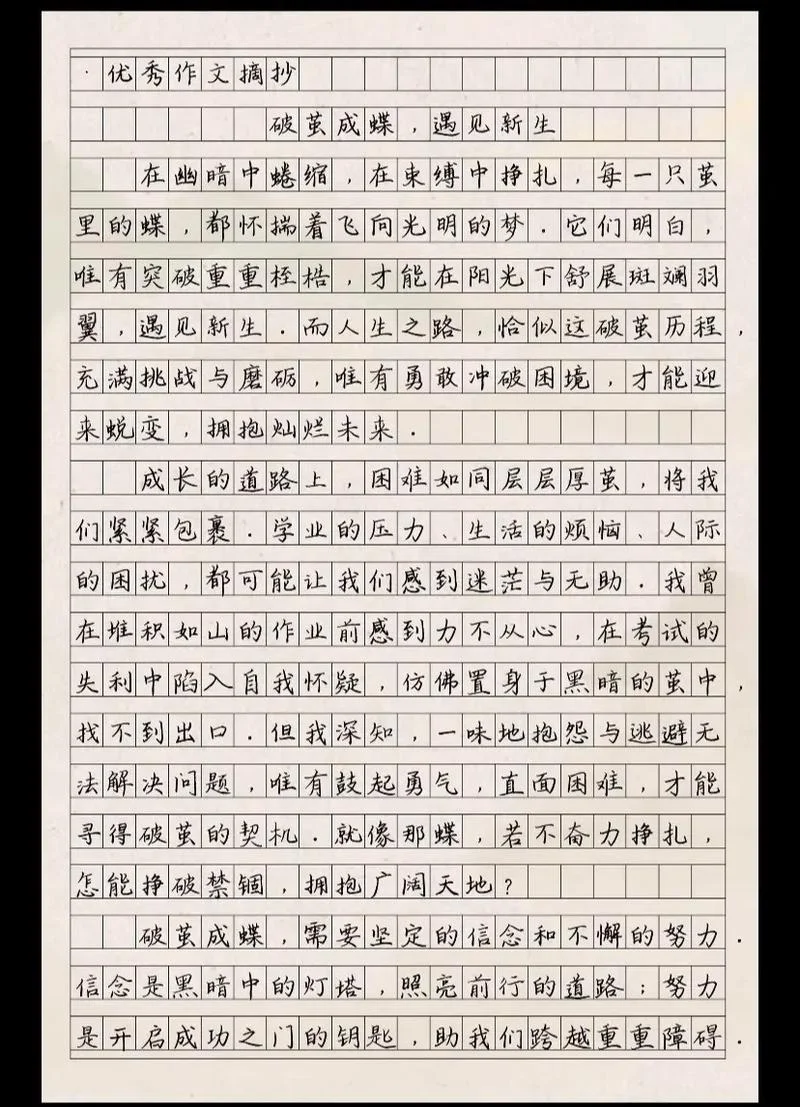 ·优秀作文摘抄
破茧成蝶，遇见新生
在幽暗中蜷缩，在束缚中挣扎，每一只茧
里的蝶，都怀揣着飞向光明的梦．它们明白，
唯有突破重重桎梏，才能在阳光下舒展斑斓羽
翼，遇见新生．而人生之路，恰似这破茧历程，
充满挑战与磨砺，唯有勇敢冲破困境，才能迎
来蜕变，拥抱灿烂未来．
成长的道路上，困难如同层层厚茧，将我
们紧紧包裹．学业的压力、生活的烦恼、人际
的困扰，都可能让我们感到迷茫与无助．我曾
在堆积如山的作业前感到力不从心，在考试的
失利中陷入自我怀疑，仿佛置身于黑暗的茧中，
找不到出口．但我深知，一味地抱怨与逃避无
法解决问题，唯有鼓起勇气，直面困难，才能
寻得破茧的契机．就像那蝶，若不奋力挣扎，
怎能挣破禁锢，拥抱广阔天地？
破茧成蝶，需要坚定的信念和不懈的努力．
信念是黑暗中的灯塔，照亮前行的道路；努力
是开启成功之门的钥匙，助我们跨越重重障碍．